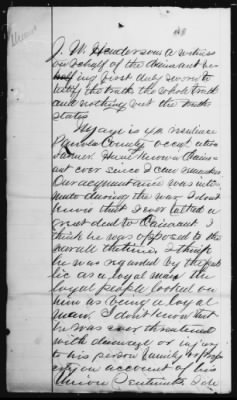 J. W. Henderson a witness
on behalf of the Claimant be
ing first duly sworn to
testify the truth the whole truth
and nothing but the truth
states
My age is 42 residence
Panola County occupation
Farmer. Have known Claim
ant ever since I can remember
Our acquaintance was inti
mate during the war. I dont
know that I ever talked a
great deal to Claimant. I
think he was opposed to the
overall I think
he was regarded by the pub
lic as a loyal man the
loyal people looked on
him as being a loyal
man. I dont know that
he was ever threatened
with damage or injury
to his person family or prop
erty on account of his
Union Sentiments I do